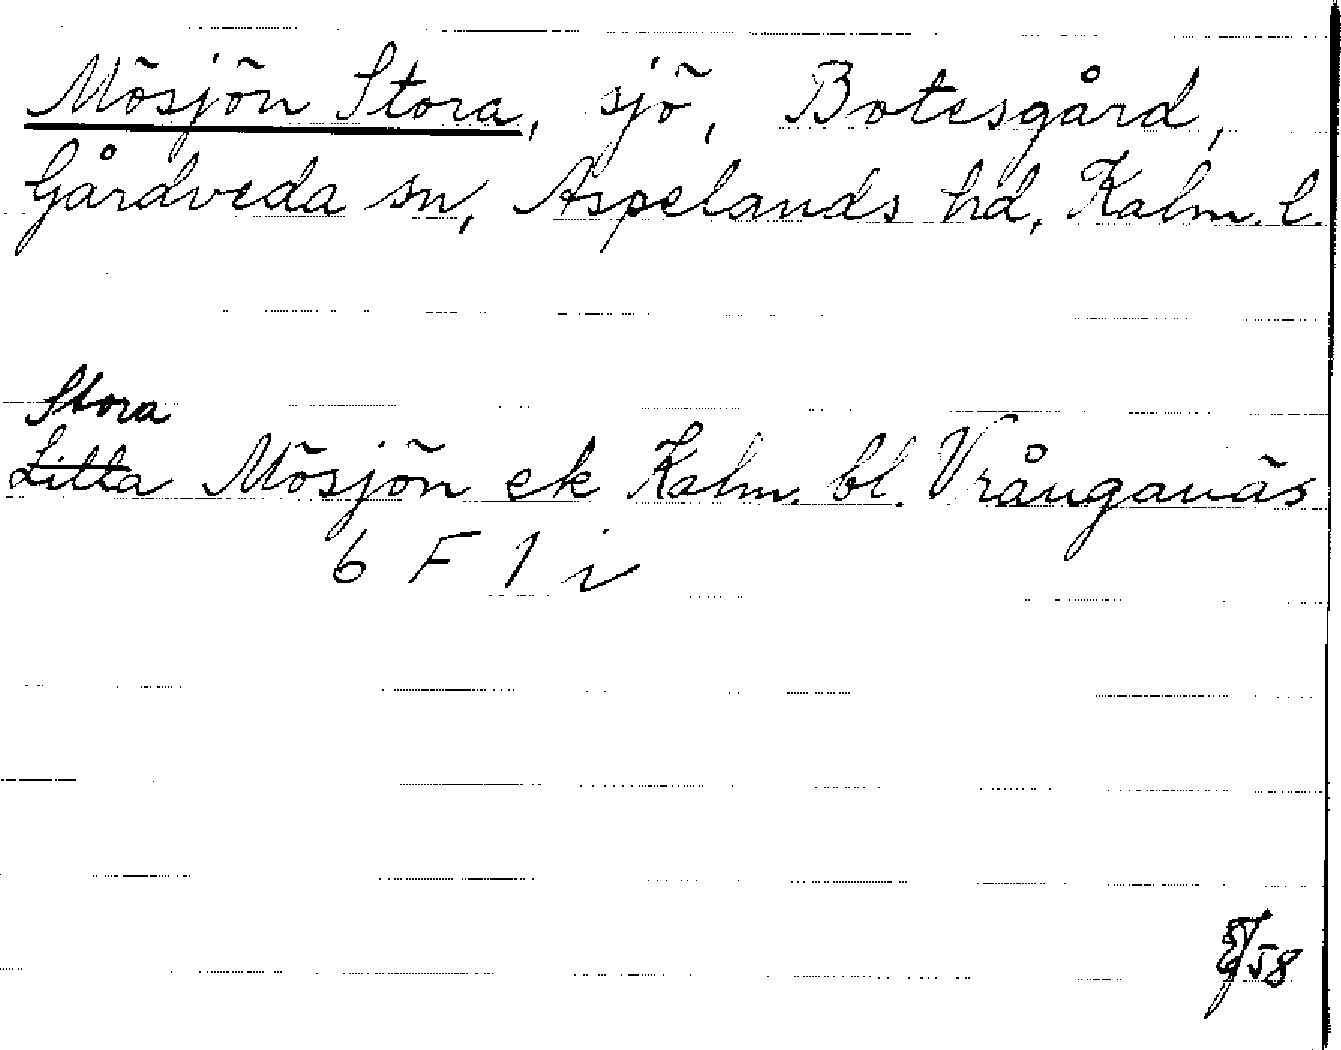 Mösjön Stora, sjö, Botesgård,
Gårdveda sn, Aspelands hd, Kalm. l.
Stora
Lilla Mösjön ek Kalm. bl. Vrånganäs
6 F 1 i
58